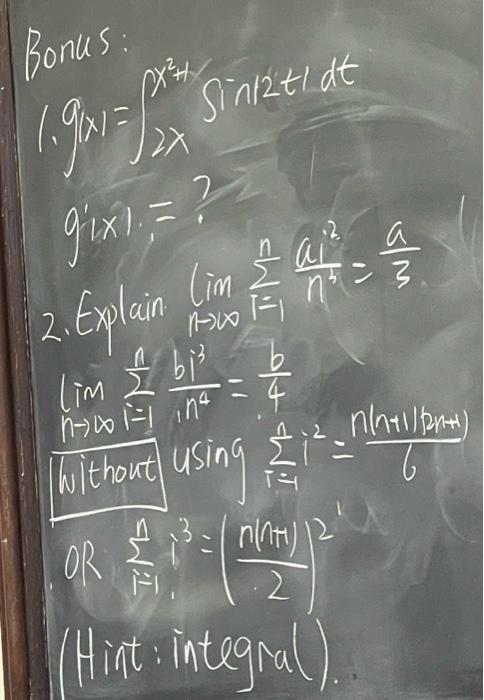 Bonus:
1. g(x) = ∫_{2x}^{x²+1} sin(2t) dt
g'(x) = ?
2. Explain lim_{n→∞} Σ_{i=1}^{n} ai²/n³ = a/3.
lim_{n→∞} Σ_{i=1}^{n} bi³/n⁴ = b/4
Without using Σ_{i=1}^{n} i² = n(n+1)(2n+1)/6
OR Σ_{i=1}^{n} i³ = (n(n+1)/2)²
(Hint: integral).